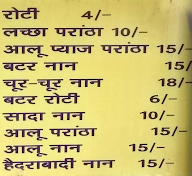 रोटी 4/-
लच्छा परांठा 10/-
आलू प्याज परांठा 15/-
बटर नान 15/
चूर-चूर नान 18/-
बटर रोटी 6/-
सादा नान 10/-
आलू परांठा 15/-
आलू नान 15/-
हैदराबादी नान 15/-